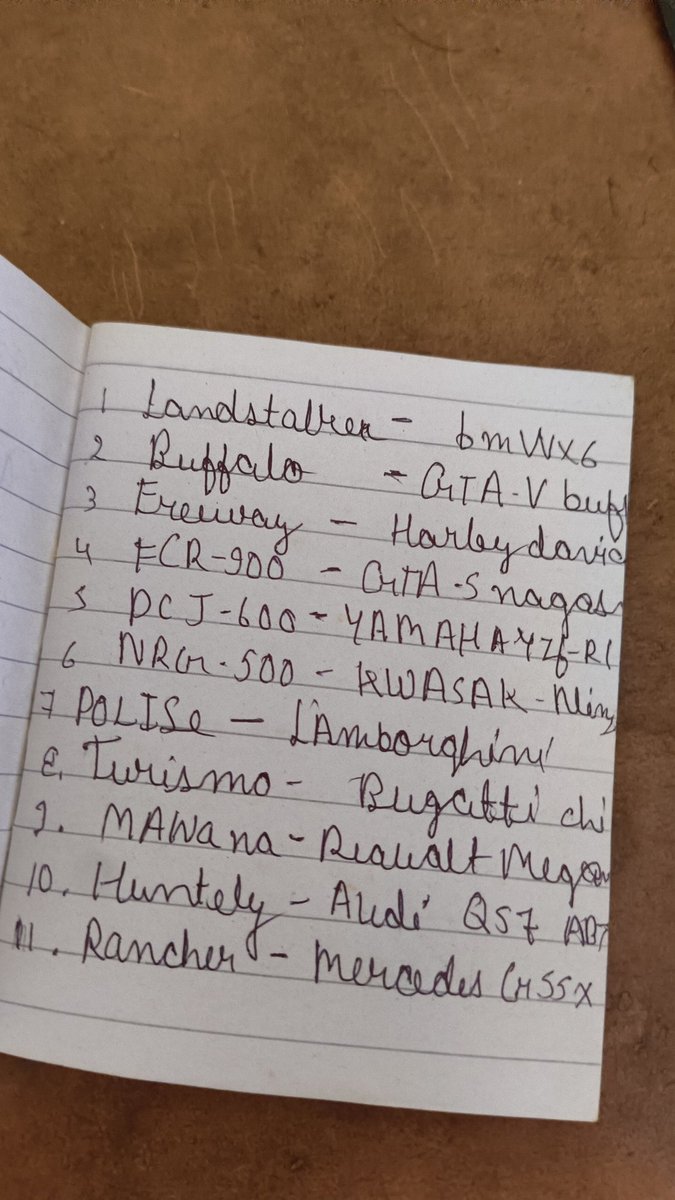 1 Landstalker - bmWX6
2 Buffalo - GTA-V buff
3 Freeway - Harley david
4 FCR-900 - GTA-5 nagas
5 PCJ-600 - YAMAHA YZf-R1
6 NRG-500 - KWASAK-Ninj
7 POLISe - LAmborghini
8. Turismo - Bugatti chi
9. MAWana - Reault Megan
10. Huntely - Audi QS7 ABT
11. Rancher - Mercedes G55X